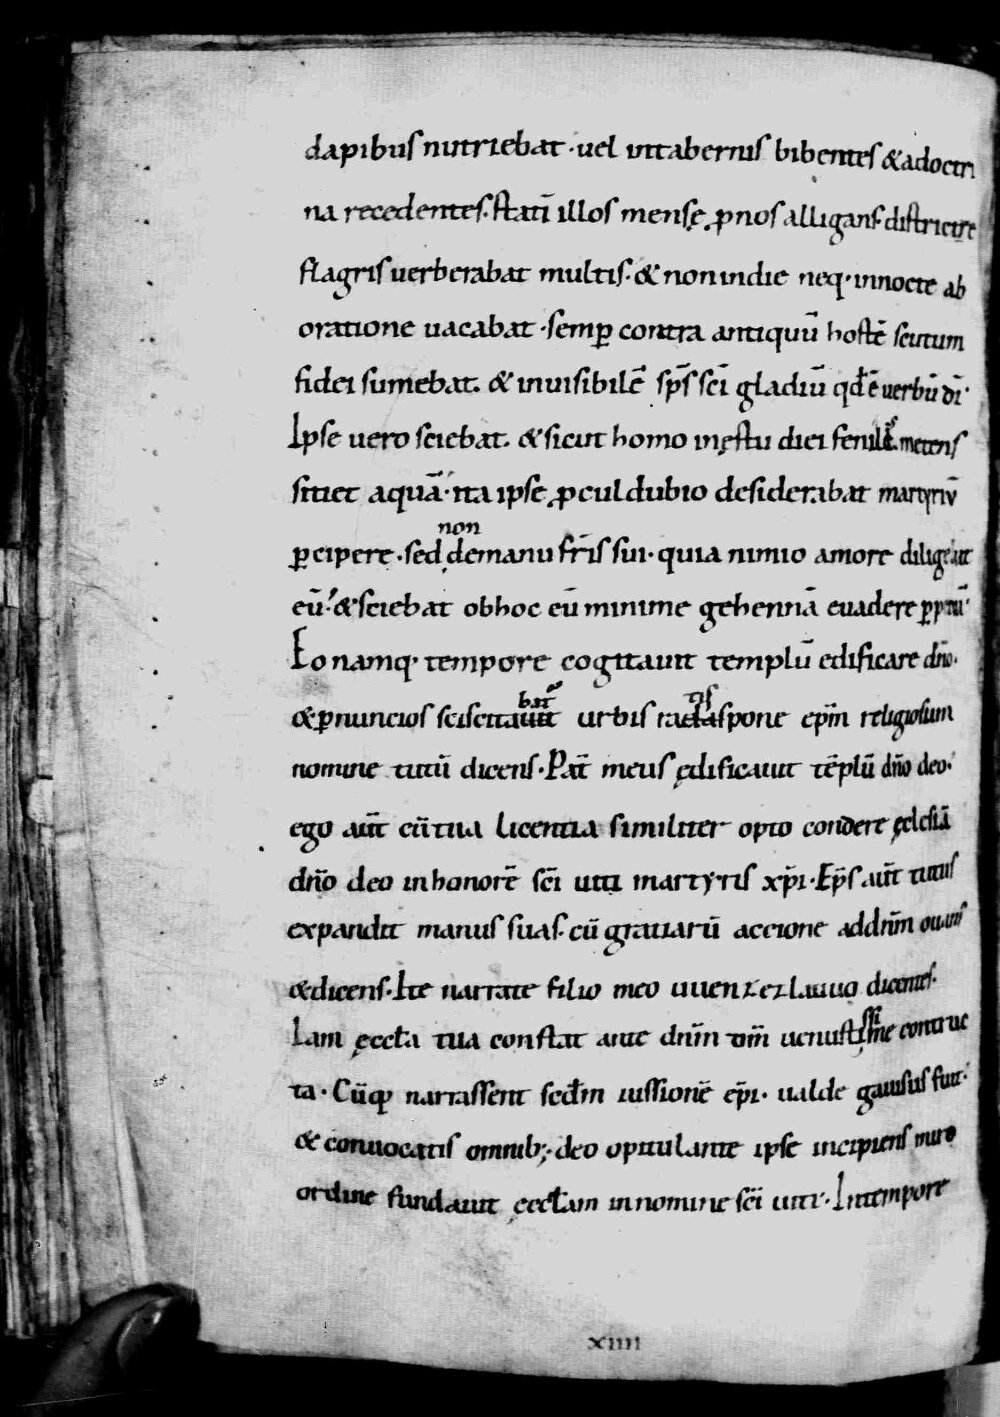 dapibus nutriebat · uel intabernis bibentes &adoctri
na recedentes. statī illos mensę ꝓnos alligans. districte
flagris uerberabat multis · & nonindie neq· innocte ab
oratione uacabat · semꝑ contra antiquū hostē scutum
fidei sumebat. & inuisibilē sp̄s sc̄i gladiū qđ ē uerbū dī·
Ipse uero sciebat. & sicut homo inęstu diei metens
sitiet aquā · ita ipse ꝓculdubio desiderabat martyriū
ꝑcipere · sed non demanu fr̄is sui · quia nimio amore
eū · & sciebat obhoc eū minime gehennā euadere
Eo namq· tempore cogitauit templū edificare dn̄o·
&ꝑnuncios urbis pone ep̄m religiosum
nomine tutū dicens · Pat̄ meus ędificauit tēplū dn̄o deo·
ego aūt cū tua licentia similiter opto condere ęclesiā
dn̄o deo inhonorē sc̄i uiti martyris xp̄i · Ep̄s aūt tutus
expandit manus suas · cū gratiarū accione addn̄m ouans
&dicens · Ite narrate filio meo uuenzezlauuo dicentes·
Iam ęccł̄a tua constat ante dn̄m om̄ uenustissime contruc
ta · Cūq narrassent secđm iussionē ep̄i · ualde gauisus fuit·
& conuocatis omnib; · deo opitulante ipse incipiens miro
ordine fundauit ęccł̄am innomine sc̄i uiti · Intempore
xiiii